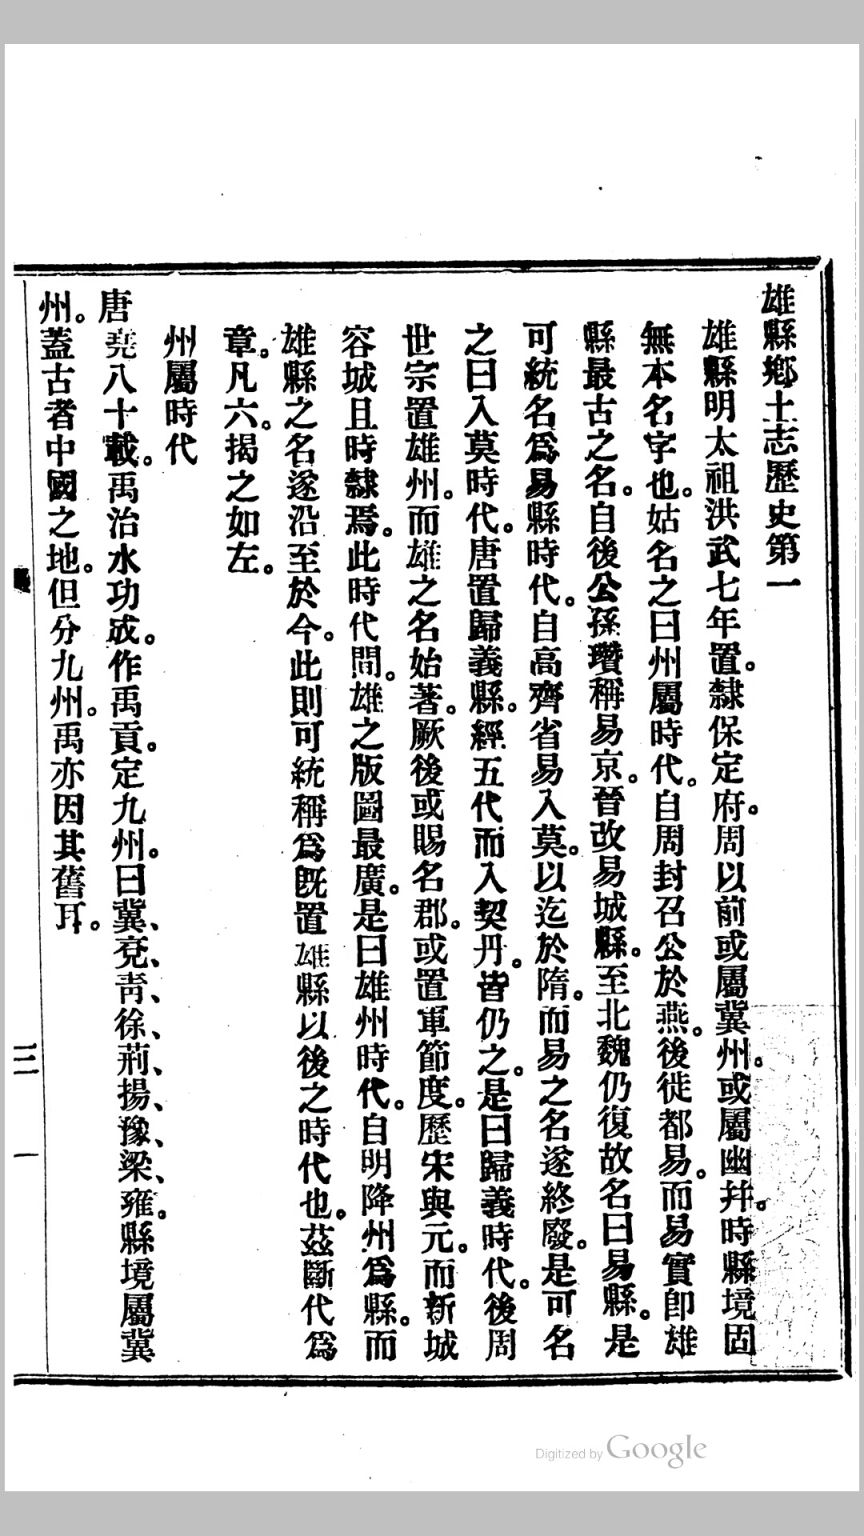 雄縣鄉土志歷史第一
雄縣明太祖洪武七年置。隸保定府。周以前或屬冀州。或屬幽幷。時縣境固
無本名字也。姑名之曰州屬時代。自周封召公於燕。後徙都易。而易實卽雄
縣最古之名。自後公孫瓚稱易京。晉改易城縣。至北魏仍復故名曰易縣。是
可統名爲易縣時代。自高齊省易入莫。以迄於隋。而易之名遂終廢。是可名
之曰入莫時代。唐置歸義縣。經五代而入契丹。皆仍之。是曰歸義時代。後周
世宗置雄州。而雄之名始著。厥後或賜名郡。或置軍節度。歷宋與元。而新城
容城且時隸焉。此時代間。雄之版圖最廣。是曰雄州時代。自明降州爲縣。而
雄縣之名遂沿至於今。此則可統稱爲旣置雄縣以後之時代也。茲斷代爲
章。凡六。揭之如左。
州屬時代
唐堯八十載。禹治水功成。作禹貢。定九州。曰冀、兗、靑、徐、荊、揚、豫、梁、雍。縣境屬冀
州。蓋古者中國之地。但分九州。禹亦因其舊耳。
三
一
Digitized by Google